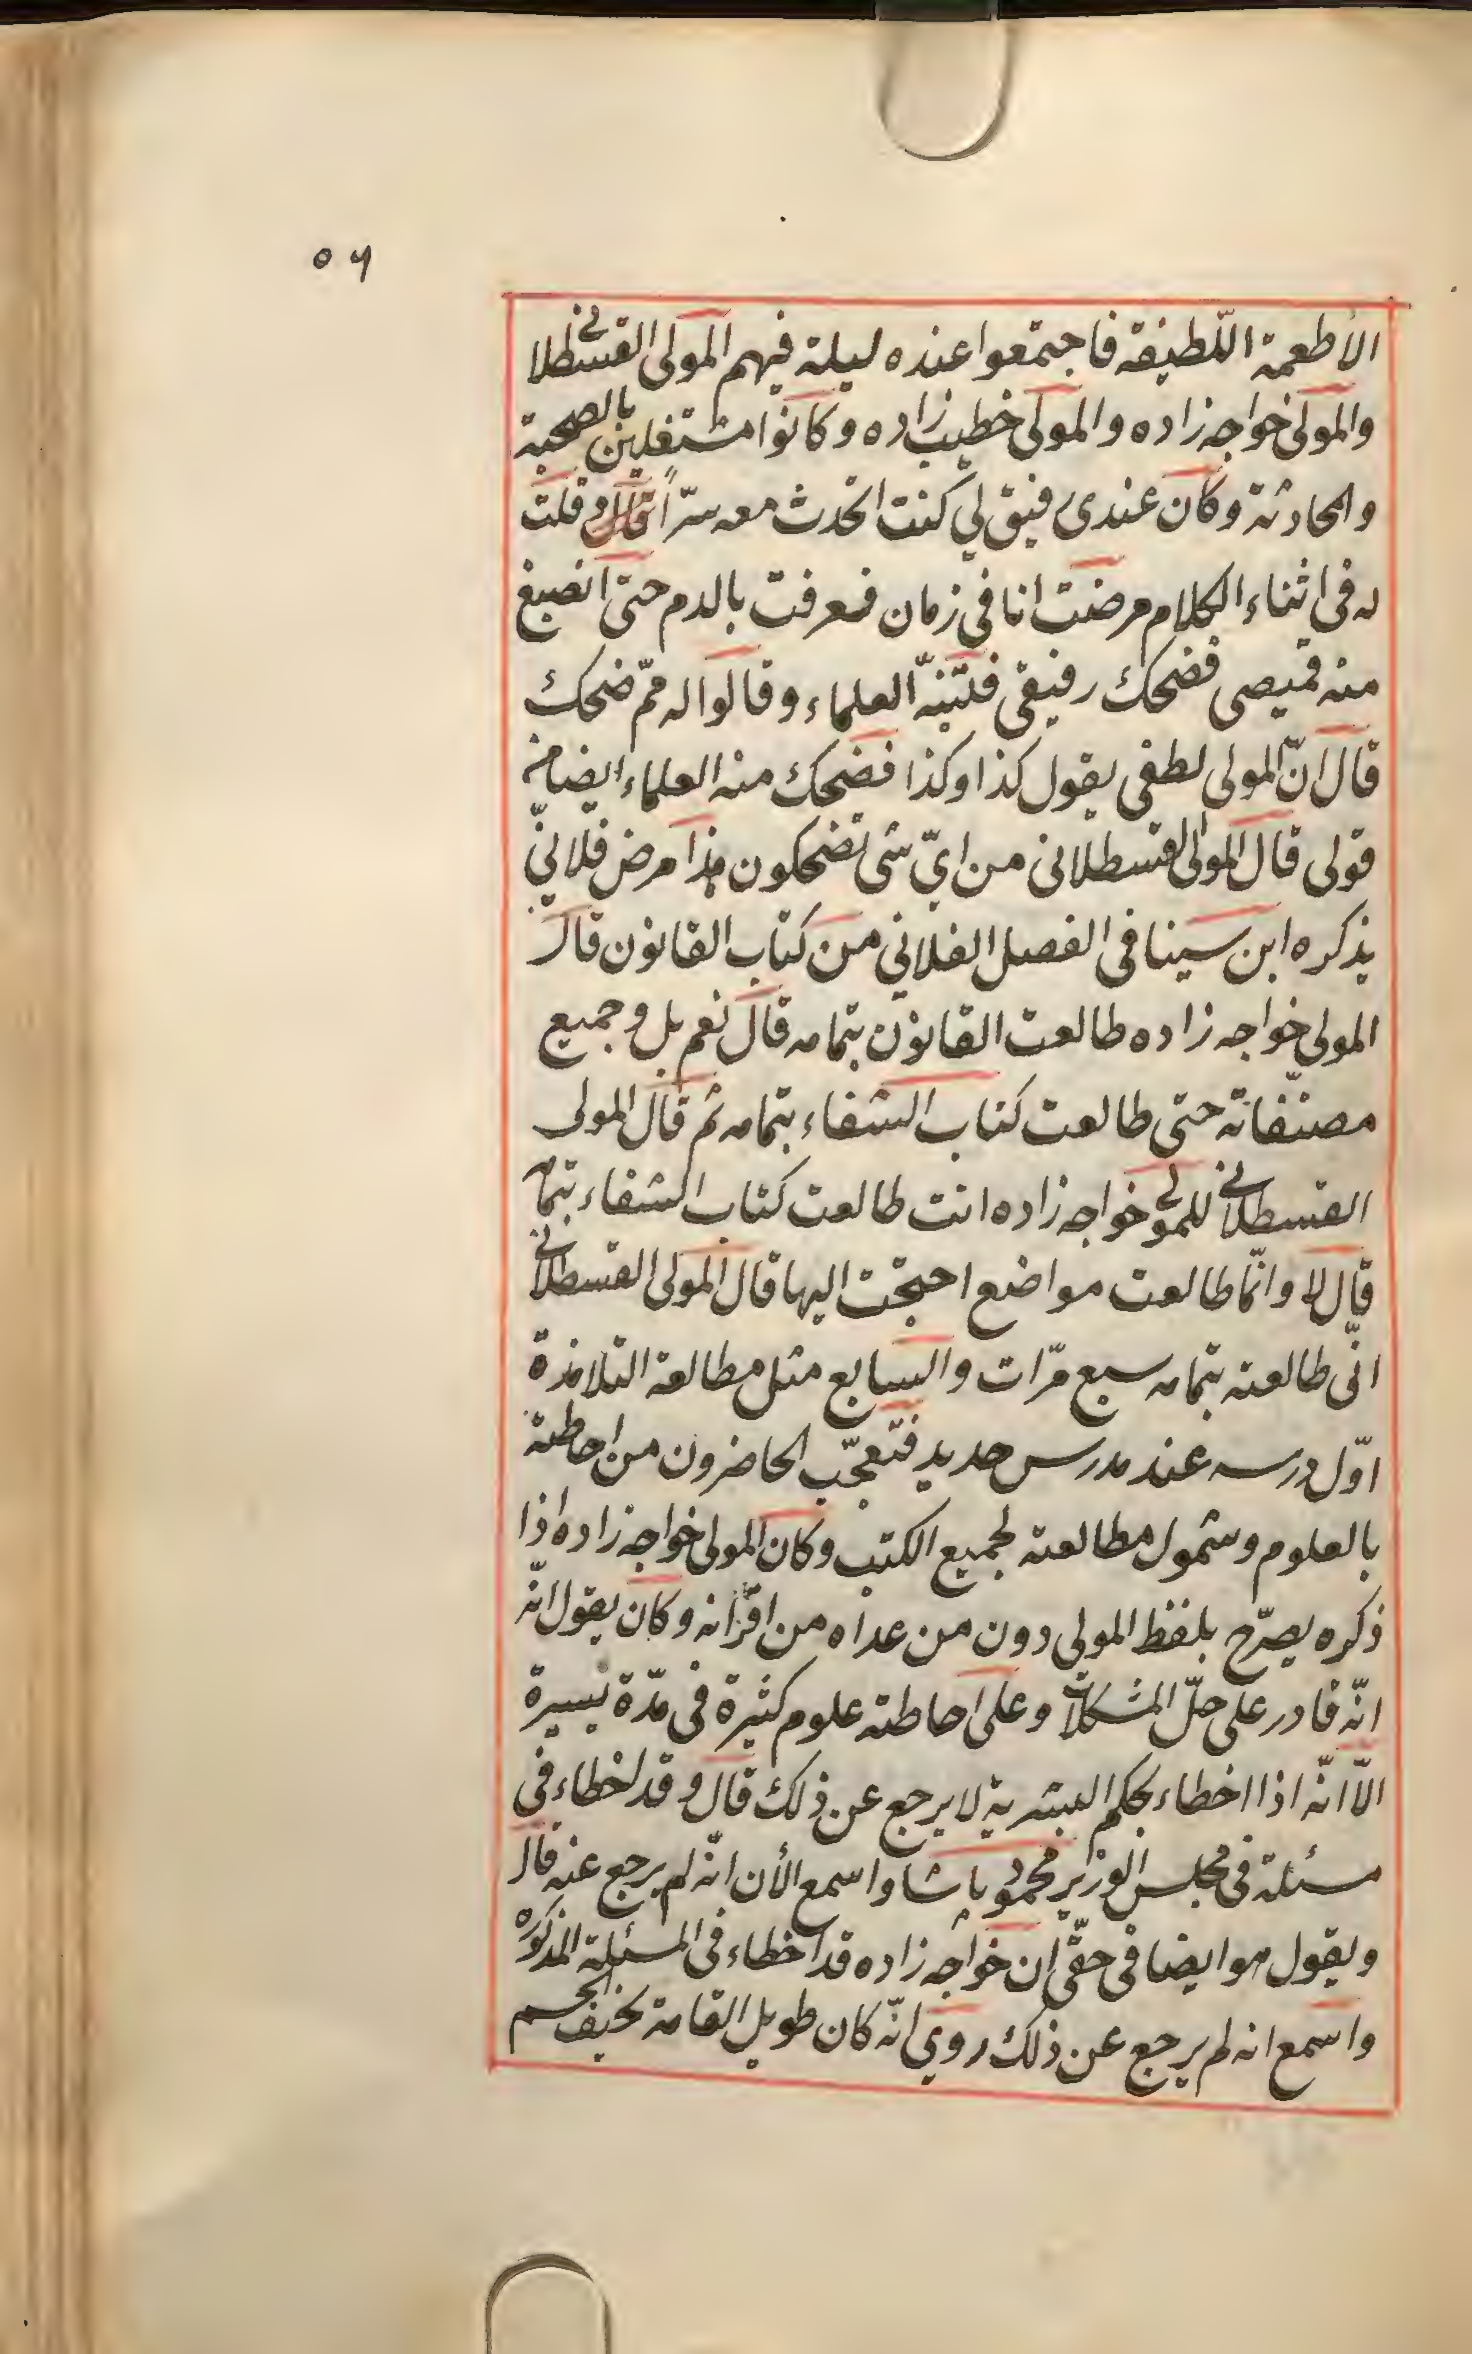 ٥٦
الأطعمة اللّطيفة فاجتمعوا عنده ليلة فيهم المولى القسطلاني
والمولى خواجه زاده والمولى خطيب زاده وكانوا مشتغلين بالصحبة
والمحادثة وكان عندى رفيق لي كنت اتحدث معه سرّاً قال وقلت
له فى اثناء الكلام مرضت انا فى زمان فعرقت بالدم حتى انصبغ
منه قميصى فضحك رفيقى فتنبّه العلماء وقالوا له ممّ ضحك
قال انّ المولى لطفى يقول كذا وكذا فضحك منه العلماء ايضا من
قولى قال المولى القسطلانى من ايّ شى تضحكون هذا مرض فلانيّ
يذكره ابن سينا فى الفصل الفلاني من كتاب القانون قال
المولى خواجه زاده طالعت القانون بتمامه قال نعم بل وجميع
مصنّفاته حتى طالعت كتاب الشفاء بتمامه ثم قال المولى
القسطلاني للمولى خواجه زاده انت طالعت كتاب الشفاء بتمامه
قال لا وانّما طالعت مواضع احتجت اليها قال المولى القسطلاني
انّى طالعته بتمامه سبع مرّات والسابع مثل مطالعة التلامذة
اوّل درسه عند مدرس جديد فتعجّب الحاضرون من احاطته
بالعلوم وشمول مطالعته لجميع الكتب وكان المولى خواجه زاده اذا
ذكره يصرّح بلفظ المولى دون من عداه من اقرانه وكان يقول انّه
انّه قادر على حلّ المشكلات وعلى احاطته علوم كثيرة فى مدّة يسيرة
الّا انّه اذا اخطاء بحكم البشرية لا يرجع عن ذلك قال وقد اخطاء فى
مسئلة فى مجلس الوزير محمود پاشا واسمع الأن انّه لم يرجع عنه قال
ويقول هو ايضا فى حقّى ان خواجه زاده قد اخطاء فى المسئلة المذكوره
واسمع انه لم يرجع عن ذلك روي انّه كان طويل القامة نحيف الجسم